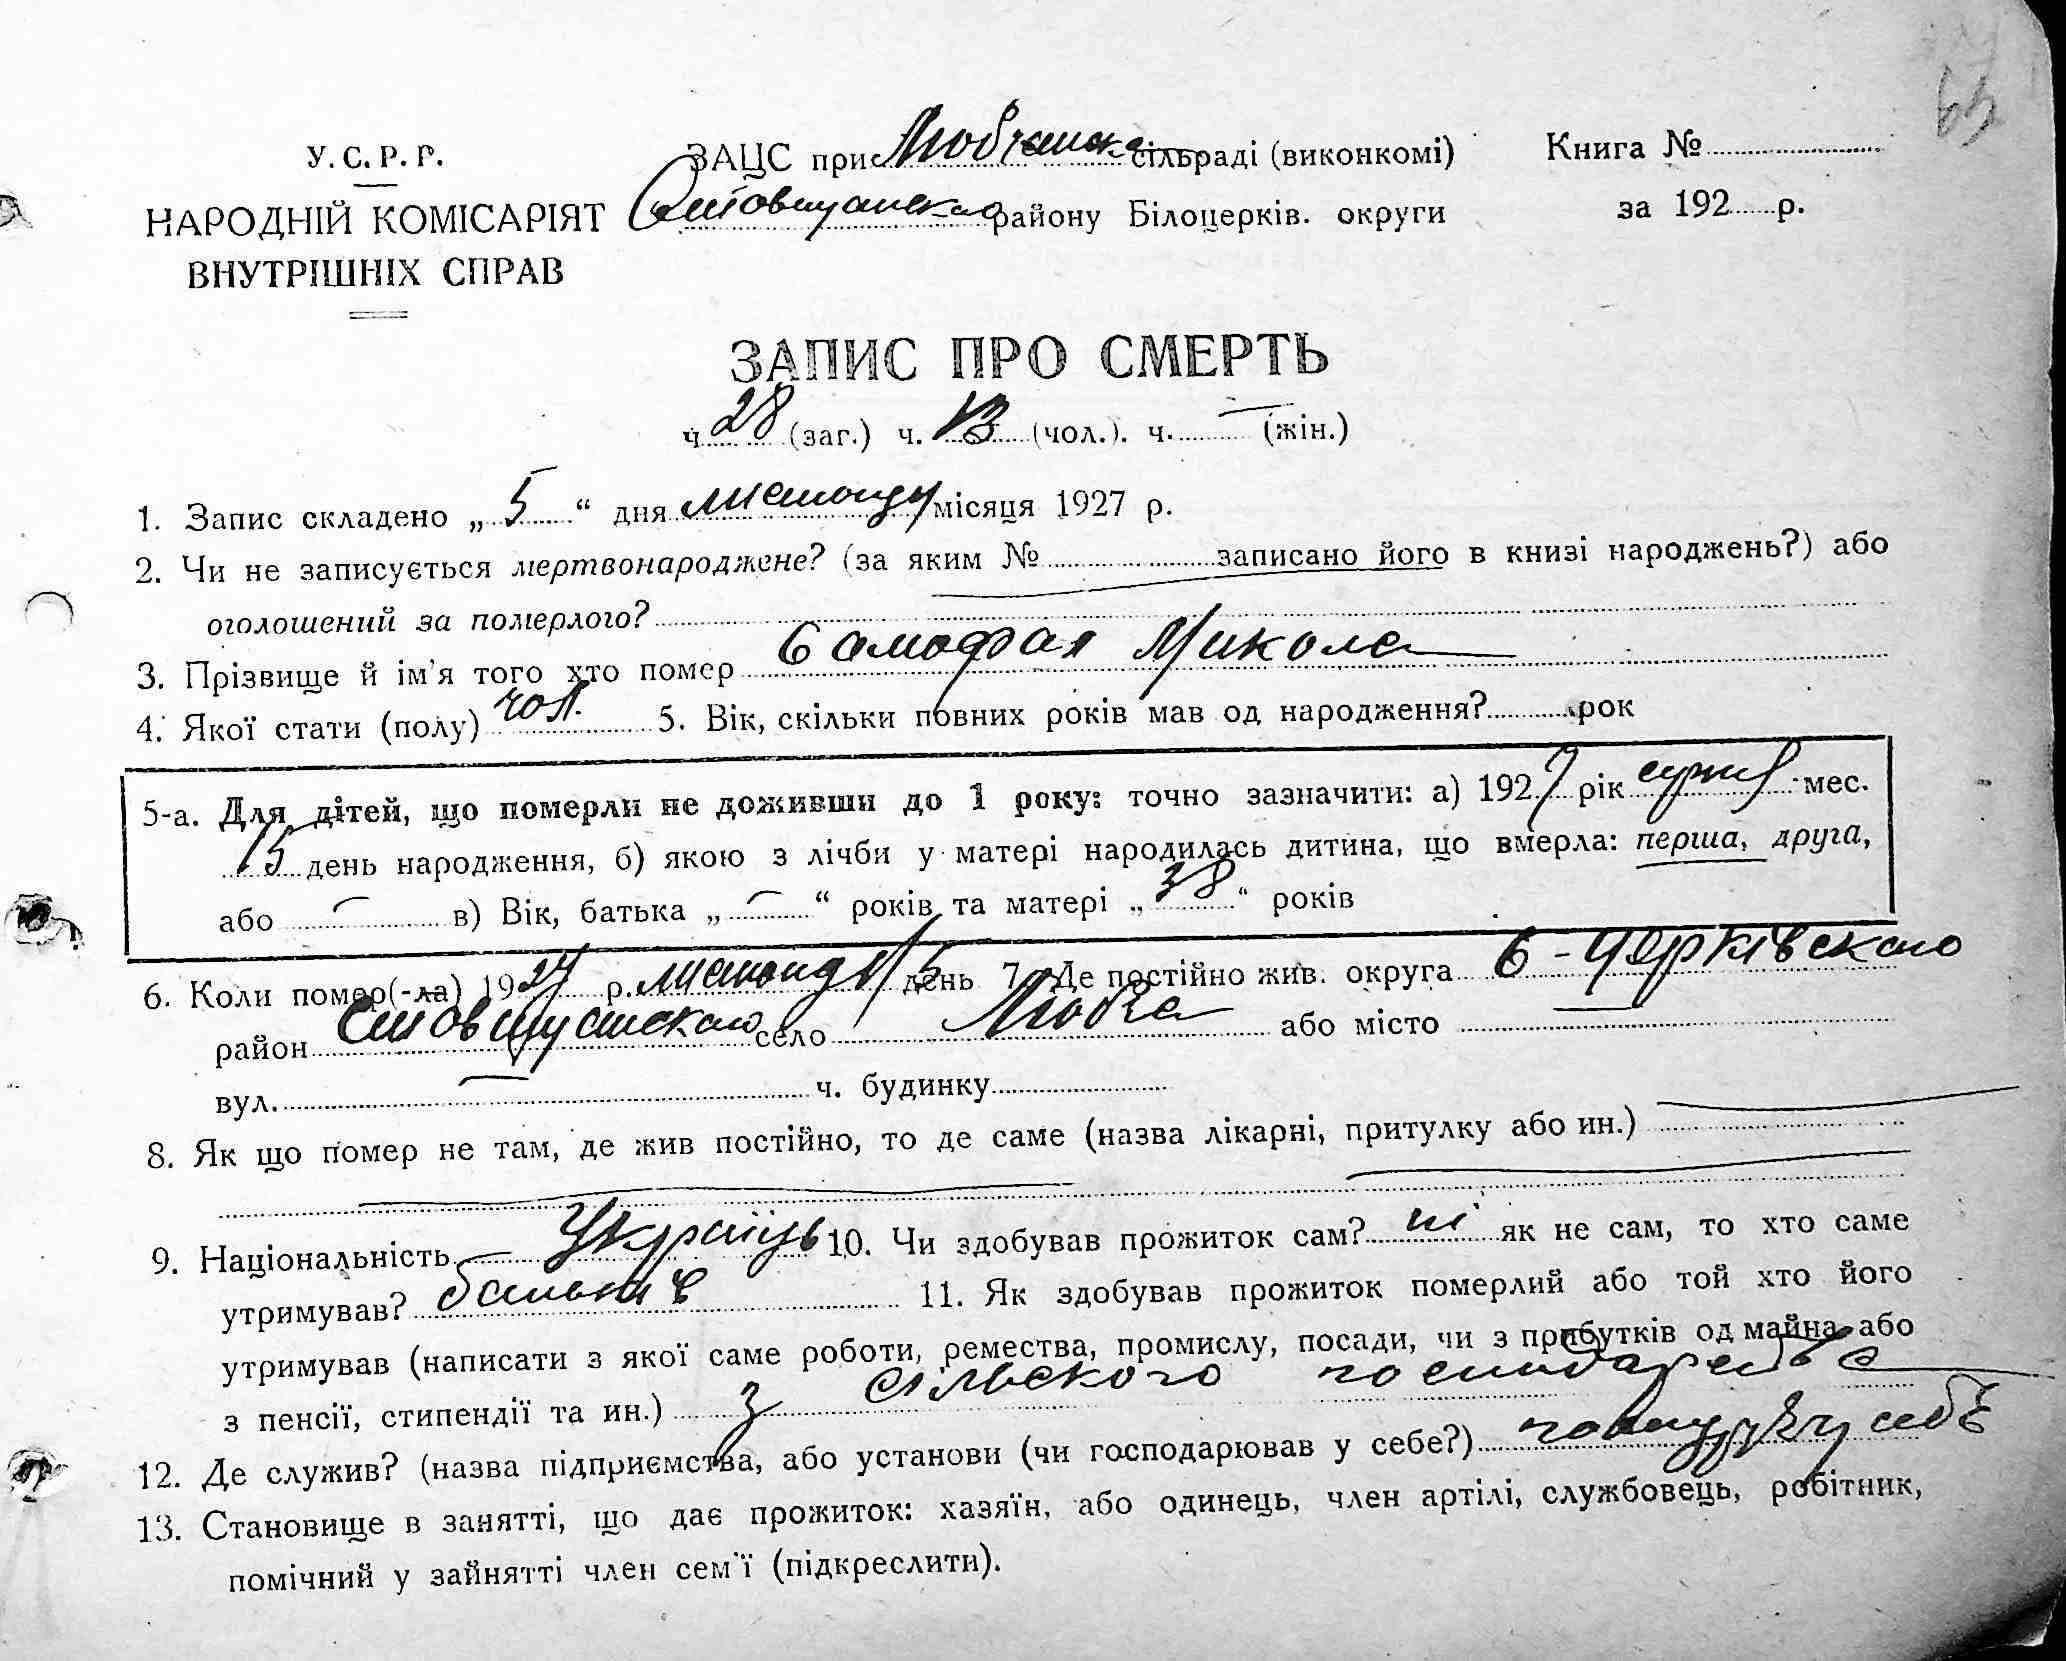 65
У.С.Р.Р.
НАРОДНІЙ КОМІСАРІЯТ
ВНУТРІШНІХ СПРАВ
ЗАЦС при Любчанска сільраді (виконкомі)
Ставищанскаго району Білоцерків. округи
Книга №
за 192 р.
ЗАПИС ПРО СМЕРТЬ
ч. 28 (заг.) ч. 13 (чол.). ч. — (жін.)
1. Запис складено „ 5 “ дня листопаду місяця 1927 р.
2. Чи не записується мертвонароджене? (за яким № записано його в книзі народжень?) або
оголошений за померлого?
3. Прізвище й ім'я того хто помер Самофал Микола
4. Якої стати (полу) чол. 5. Вік, скільки повних років мав од народження? рок
5-а. Для дітей, що померли не доживши до 1 року: точно зазначити: а) 1927 рік серпня мес.
15 день народження, б) якою з лічби у матері народилась дитина, що вмерла: перша, друга,
або — в) Вік, батька „ — “ років та матері „ 38 “ років
6. Коли помер(-ла) 1927 р. листопаду 5 день 7. Де постійно жив. округа Б-Черківского
район Ставищанскаго село Любча або місто —
вул. — ч. будинку
8. Як що помер не там, де жив постійно, то де саме (назва лікарні, притулку або ин.)
9. Національність Украінць 10. Чи здобував прожиток сам? ні як не сам, то хто саме
утримував? батьків 11. Як здобував прожиток померлий або той хто його
утримував (написати з якої саме роботи, ремества, промислу, посади, чи з прибутків од майна або
з пенсії, стипендії та ин.) з сільского господарства
12. Де служив? (назва підприємства, або установи (чи господарював у себе?) у себе
13. Становище в занятті, що дає прожиток: хазяїн, або одинець, член артілі, службовець, робітник,
помічний у зайнятті член сем'ї (підкреслити).